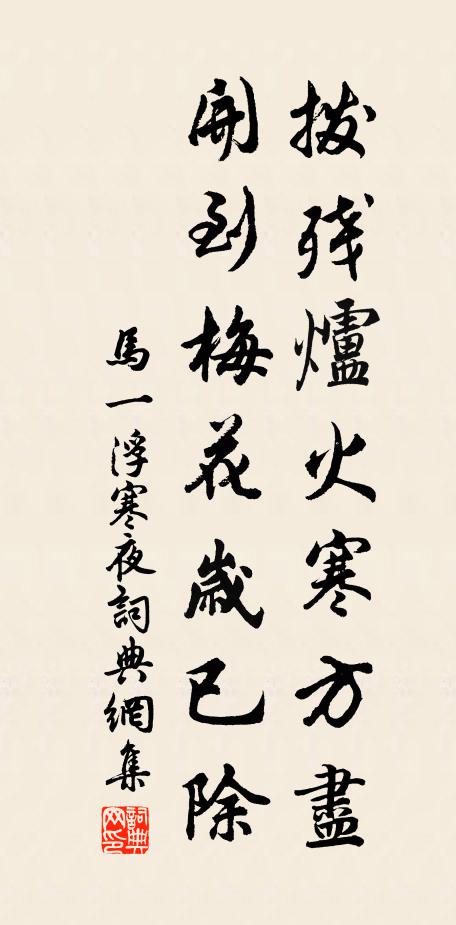 拨残爐火寒方盡
開到梅花歲已除
馬一浮寒夜詞典網集
詞典网印